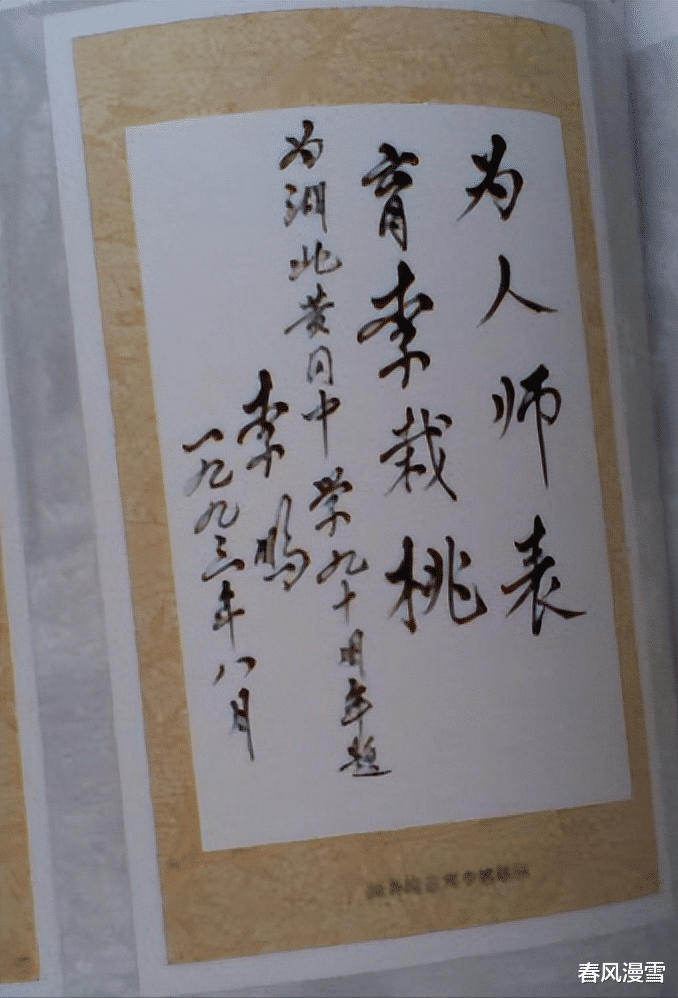 为人师表
育李栽桃
为湖北黄冈中学九十周年题
李鹏
一九九三年八月
春风漫雪